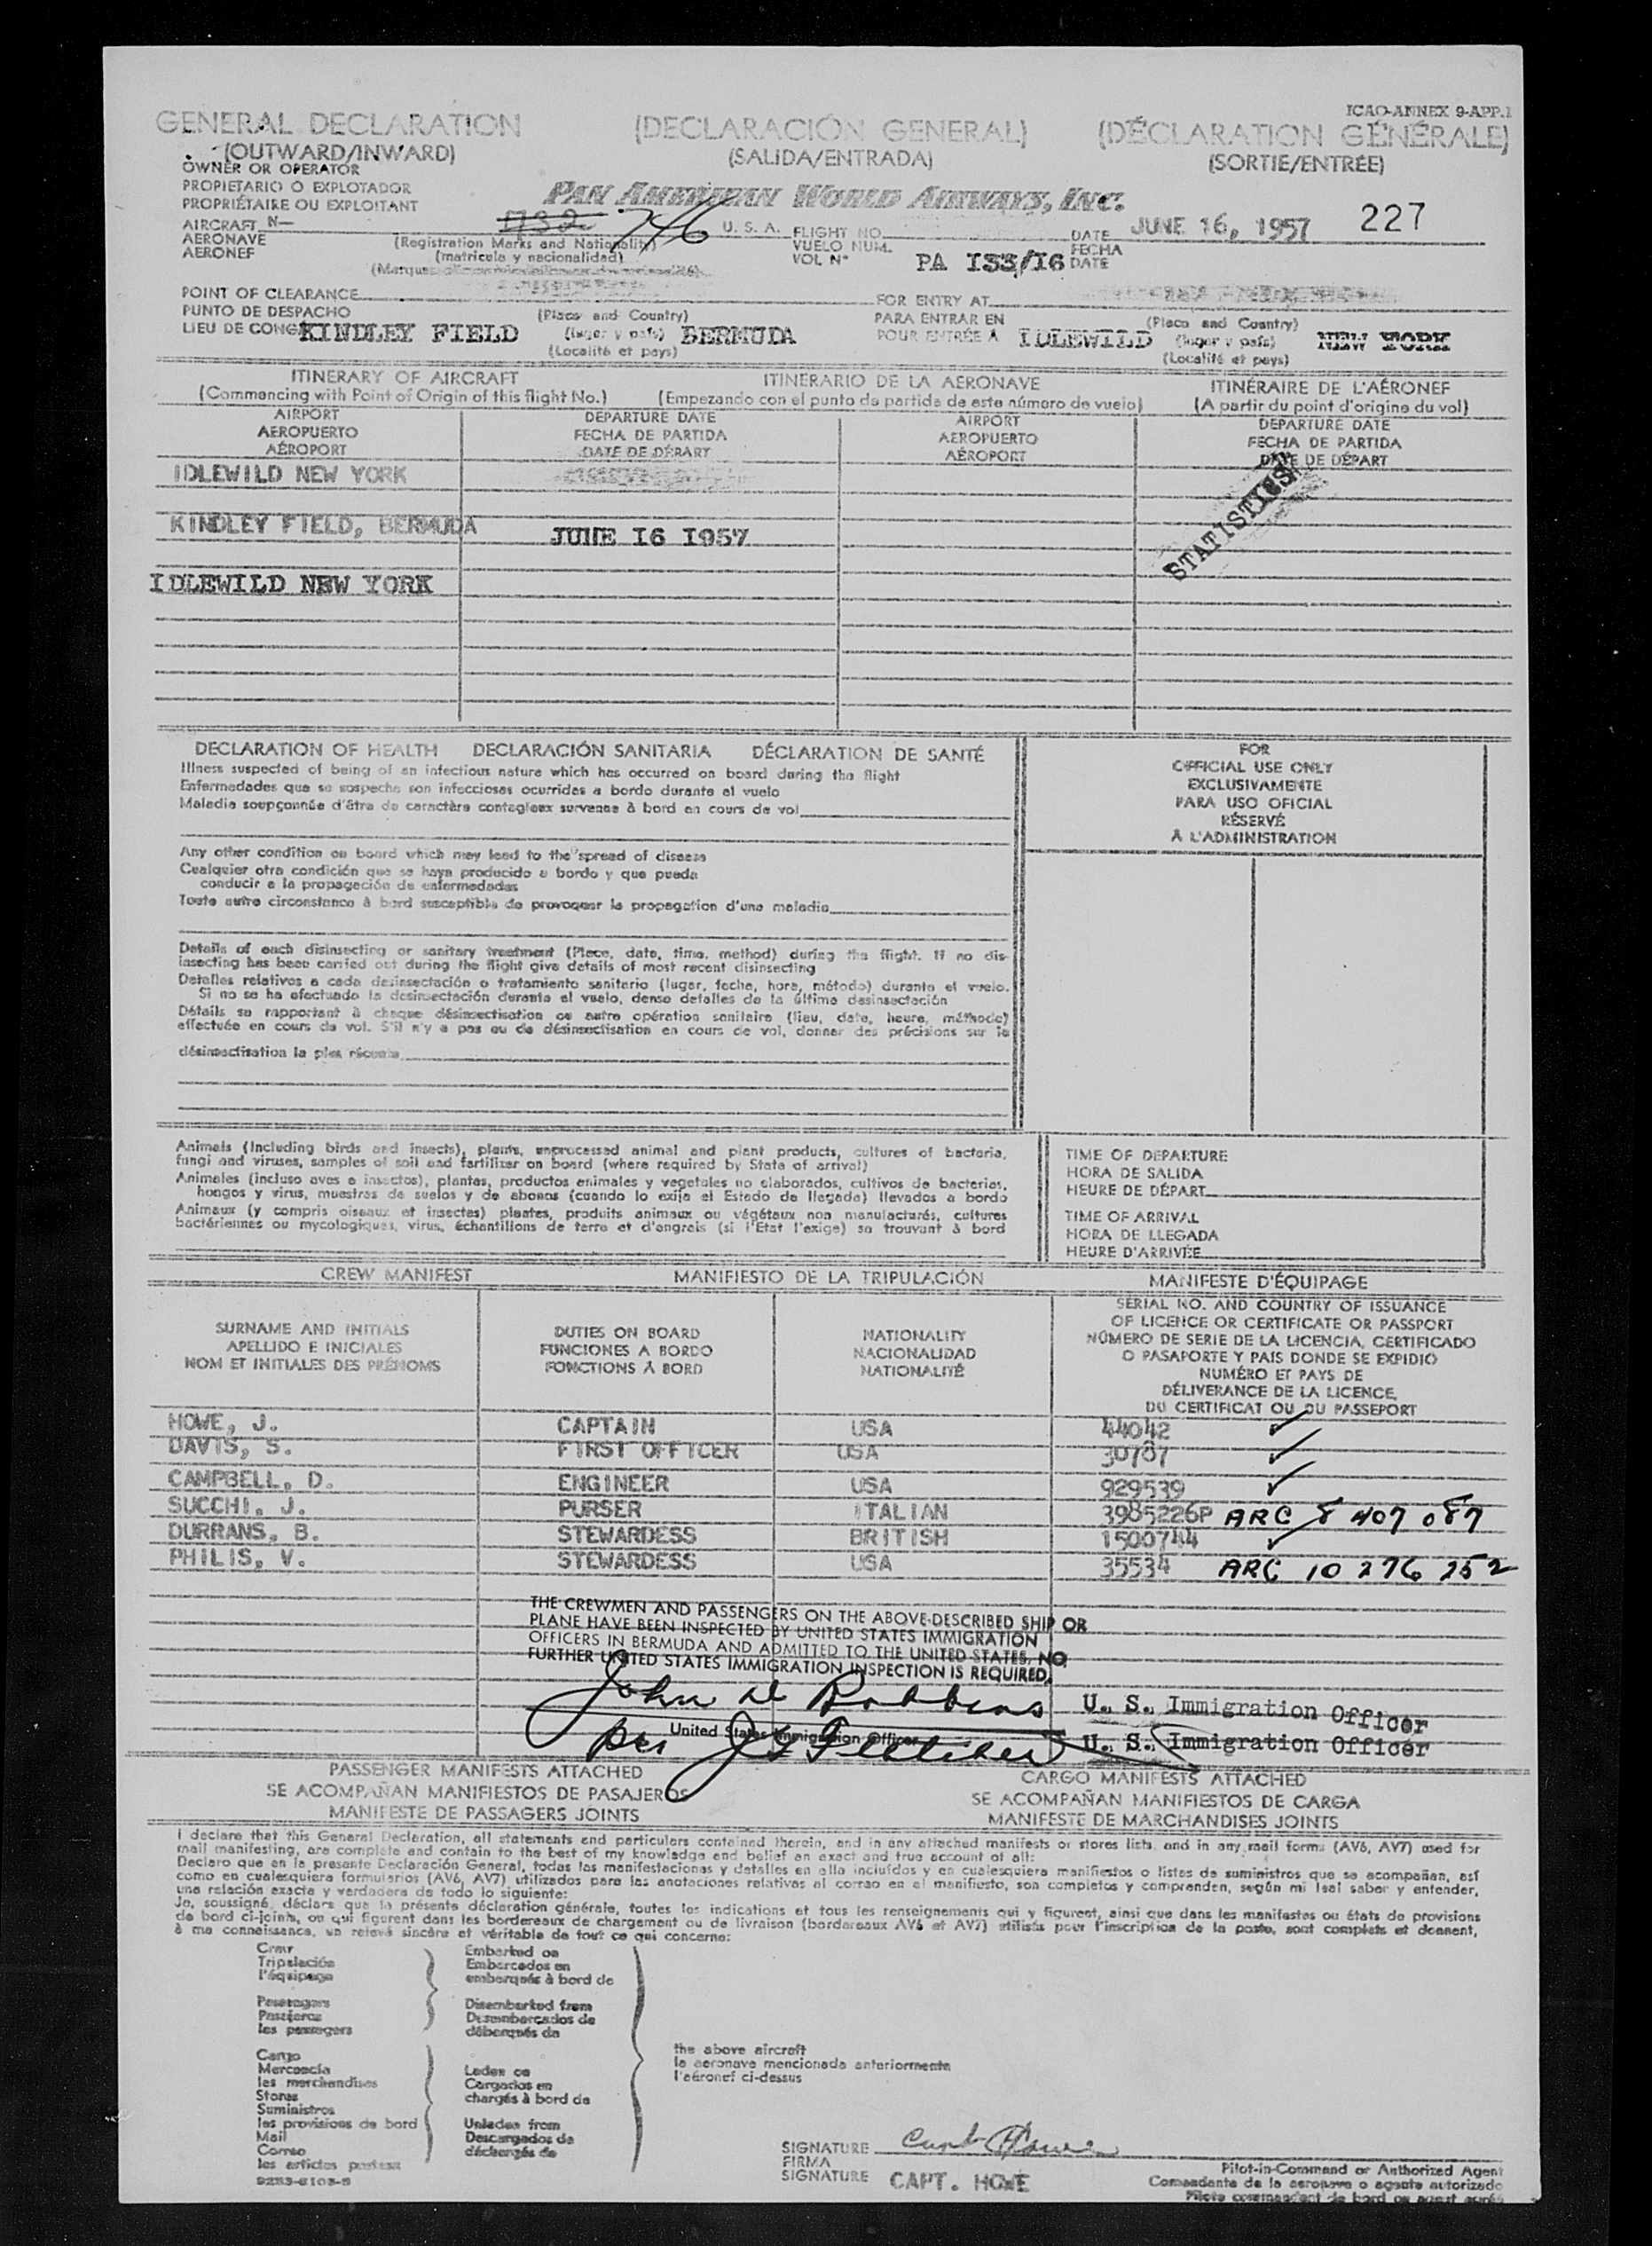 ICAO-ANNEX 9-APP.1
GENERAL DECLARATION (DECLARACIÓN GENERAL) (DÉCLARATION GÉNÉRALE)
(OUTWARD/INWARD) (SALIDA/ENTRADA) (SORTIE/ENTRÉE)
OWNER OR OPERATOR
PROPIETARIO O EXPLOTADOR
PROPRIÉTAIRE OU EXPLOITANT
PAN AMERICAN WORLD AIRWAYS, INC.
AIRCRAFT N— 746 U. S. A. FLIGHT NO. DATE JUNE 16, 1957 227
AERONAVE (Registration Marks and Nationality) VUELO NUM. FECHA
AERONEF (matricula y nacionalidad) VOL N° PA 133/16 DATE
POINT OF CLEARANCE FOR ENTRY AT
PUNTO DE DESPACHO (Place and Country) PARA ENTRAR EN (Place and Country)
LIEU DE CONGÉ KINDLEY FIELD (lugar y país) BERMUDA POUR ENTRÉE À IDLEWILD (lugar y país) NEW YORK
(Localité et pays) (Localité et pays)
ITINERARY OF AIRCRAFT ITINERARIO DE LA AERONAVE ITINÉRAIRE DE L'AÉRONEF
(Commencing with Point of Origin of this flight No.) (Empezando con el punto de partida de este número de vuelo) (A partir du point d'origine du vol)
AIRPORT DEPARTURE DATE AIRPORT DEPARTURE DATE
AEROPUERTO FECHA DE PARTIDA AEROPUERTO FECHA DE PARTIDA
AÉROPORT DATE DE DÉPART AÉROPORT DATE DE DÉPART
IDLEWILD NEW YORK
STATISTICS
KINDLEY FIELD, BERMUDA JUNE 16 1957
IDLEWILD NEW YORK
DECLARATION OF HEALTH DECLARACIÓN SANITARIA DÉCLARATION DE SANTÉ
Illness suspected of being of an infectious nature which has occurred on board during the flight
Enfermedades que se sospeche son infecciosas ocurridas a bordo durante el vuelo
Maladie soupçonnée d'être de caractère contagieux survenue à bord en cours de vol
Any other condition on board which may lead to the spread of disease
Cualquier otra condición que se haya producido a bordo y que pueda
conducir a la propagación de enfermedades
Toute autre circonstance à bord susceptible de provoquer la propagation d'une maladie
Details of each disinsecting or sanitary treatment (Place, date, time, method) during the flight. If no dis-
insecting has been carried out during the flight give details of most recent disinsecting
Detalles relativos a cada desinsectación o tratamiento sanitario (lugar, fecha, hora, método) durante el vuelo.
Si no se ha efectuado la desinsectación durante el vuelo, dense detalles de la última desinsectación
Détails se rapportant à chaque désinsectisation ou autre opération sanitaire (lieu, date, heure, méthode)
effectuée en cours de vol. S'il n'y a pas eu de désinsectisation en cours de vol, donner des précisions sur la
désinsectisation la plus récente
FOR
OFFICIAL USE ONLY
EXCLUSIVAMENTE
PARA USO OFICIAL
RÉSERVÉ
À L'ADMINISTRATION
Animals (Including birds and insects), plants, unprocessed animal and plant products, cultures of bacteria,
fungi and viruses, samples of soil and fertilizer on board (where required by State of arrival)
Animales (incluso aves e insectos), plantas, productos animales y vegetales no elaborados, cultivos de bacterias,
hongos y virus, muestras de suelos y de abonos (cuando lo exija el Estado de llegada) llevados a bordo
Animaux (y compris oiseaux et insectes) plantes, produits animaux ou végétaux non manufacturés, cultures
bactériennes ou mycologiques, virus, échantillons de terre et d'engrais (si l'Etat l'exige) se trouvant à bord
TIME OF DEPARTURE
HORA DE SALIDA
HEURE DE DÉPART
TIME OF ARRIVAL
HORA DE LLEGADA
HEURE D'ARRIVÉE
CREW MANIFEST MANIFIESTO DE LA TRIPULACIÓN MANIFESTE D'ÉQUIPAGE
SURNAME AND INITIALS
APELLIDO E INICIALES
NOM ET INITIALES DES PRÉNOMS
DUTIES ON BOARD
FUNCIONES A BORDO
FONCTIONS À BORD
NATIONALITY
NACIONALIDAD
NATIONALITÉ
SERIAL NO. AND COUNTRY OF ISSUANCE
OF LICENCE OR CERTIFICATE OR PASSPORT
NÚMERO DE SERIE DE LA LICENCIA, CERTIFICADO
O PASAPORTE Y PAIS DONDE SE EXPIDIÓ
NUMÉRO ET PAYS DE
DÉLIVERANCE DE LA LICENCE,
DU CERTIFICAT OU DU PASSEPORT
HOWE, J. CAPTAIN USA 44042
DAVIS, S. FIRST OFFICER USA 30787
CAMPBELL, D. ENGINEER USA 929539
SUCCHI, J. PURSER ITALIAN 3985226P ARC 8 407 087
DURRANS, B. STEWARDESS BRITISH 1500744
PHILIS, V. STEWARDESS USA 35534 ARC 10 276 252
THE CREWMEN AND PASSENGERS ON THE ABOVE-DESCRIBED SHIP OR
PLANE HAVE BEEN INSPECTED BY UNITED STATES IMMIGRATION
OFFICERS IN BERMUDA AND ADMITTED TO THE UNITED STATES, NO
FURTHER UNITED STATES IMMIGRATION INSPECTION IS REQUIRED.
John D Robbins U. S. Immigration Officer
United States Immigration Officer
per J G Fletcher U. S. Immigration Officer
PASSENGER MANIFESTS ATTACHED CARGO MANIFESTS ATTACHED
SE ACOMPAÑAN MANIFIESTOS DE PASAJEROS SE ACOMPAÑAN MANIFIESTOS DE CARGA
MANIFESTE DE PASSAGERS JOINTS MANIFESTE DE MARCHANDISES JOINTS
I declare that this General Declaration, all statements and particulars contained therein, and in any attached manifests or stores lists, and in any mail forms (AV6, AV7) used for
mail manifesting, are complete and contain to the best of my knowledge and belief an exact and true account of all:
Declaro que en la presente Declaración General, todas las manifestaciones y detalles en ella incluídos y en cualesquiera manifiestos o listas de suministros que se acompañan, así
como en cualesquiera formularios (AV6, AV7) utilizados para las anotaciones relativas al correo en el manifiesto, son completos y comprenden, según mi leal saber y entender,
una relación exacta y verdadera de todo lo siguiente:
Je, soussigné, déclare que la présente déclaration générale, toutes les indications et tous les renseignements qui y figurent, ainsi que dans les manifestes ou états de provisions
de bord ci-joints, ou qui figurent dans les bordereaux de chargement ou de livraison (bordereaux AV6 et AV7) utilisés pour l'inscription de la poste, sont complets et donnent,
à ma connaissance, un relevé sincère et véritable de tout ce qui concerne:
Crew
Tripulación
l'équipage
Passengers
Pasajeros
les passagers
Cargo
Mercancía
les marchandises
Stores
Suministros
les provisions de bord
Mail
Correo
les articles postaux
Embarked on
Embarcados en
embarqués à bord de
Disembarked from
Desembarcados de
débarqués de
Laden on
Cargados en
chargés à bord de
Unladen from
Descargados de
déchargés de
the above aircraft
la aeronave mencionada anteriormente
l'aéronef ci-dessus
SIGNATURE
FIRMA
SIGNATURE CAPT. HOWE
Pilot-in-Command or Authorized Agent
Comandante de la aeronave o agente autorizado
Pilote commandant de bord ou agent agréé